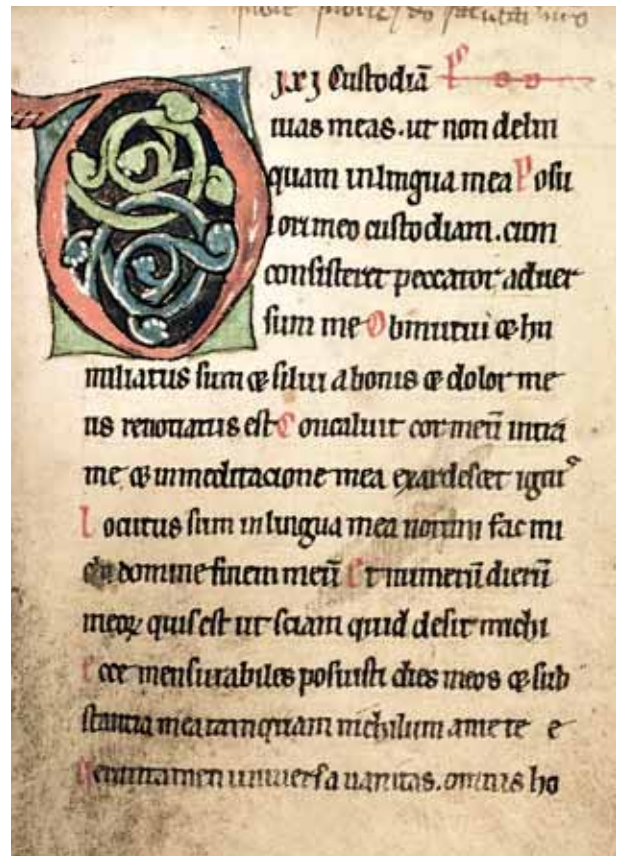 Dixi Custodiā
uias meas . ut non delin
quam in lingua mea Posu
i ori meo custodiam . cum
consisteret peccator aduer
sum me Obmutui & hu
miliatus sum & silui a bonis & dolor me
us renouatus est Concaluit cor meū intra
me & in meditacione mea exardescet ignis
Locutus sum in lingua mea notum fac mi
chi domine finem meū Et numerū dierū
meoꝝ quis est ut sciam quid desit michi
Ecce mensurabiles posuisti dies meos & sub
stantia mea tamquam nichilum ante te e
uniuersa uanitas . omnis ho